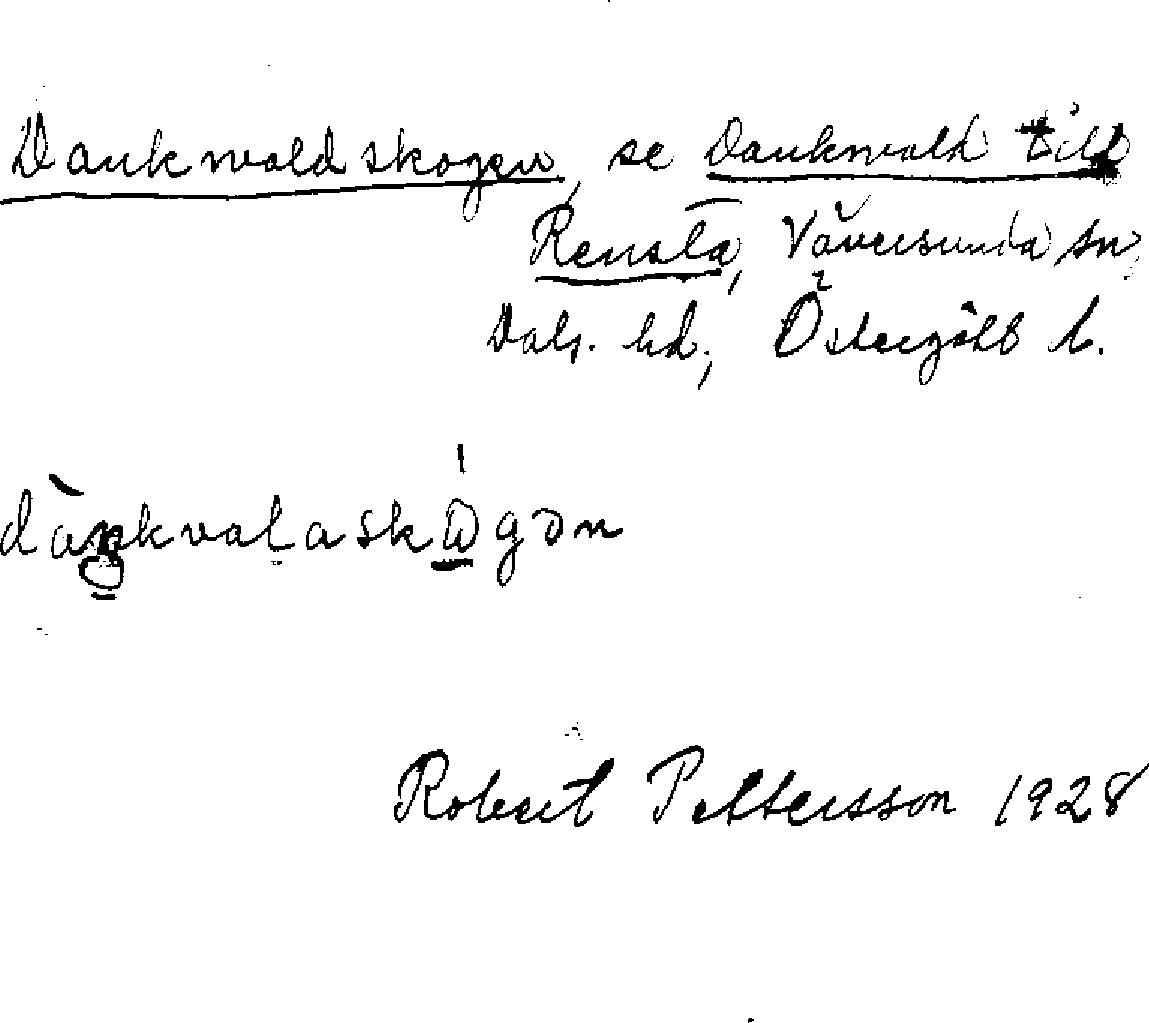 Dankwaldskogen, se Dankwald till
Rensta, Väversunda sn,
Dals. hd., Östergötl l.
dàŋkvalaskógən
Robert Pettersson 1928